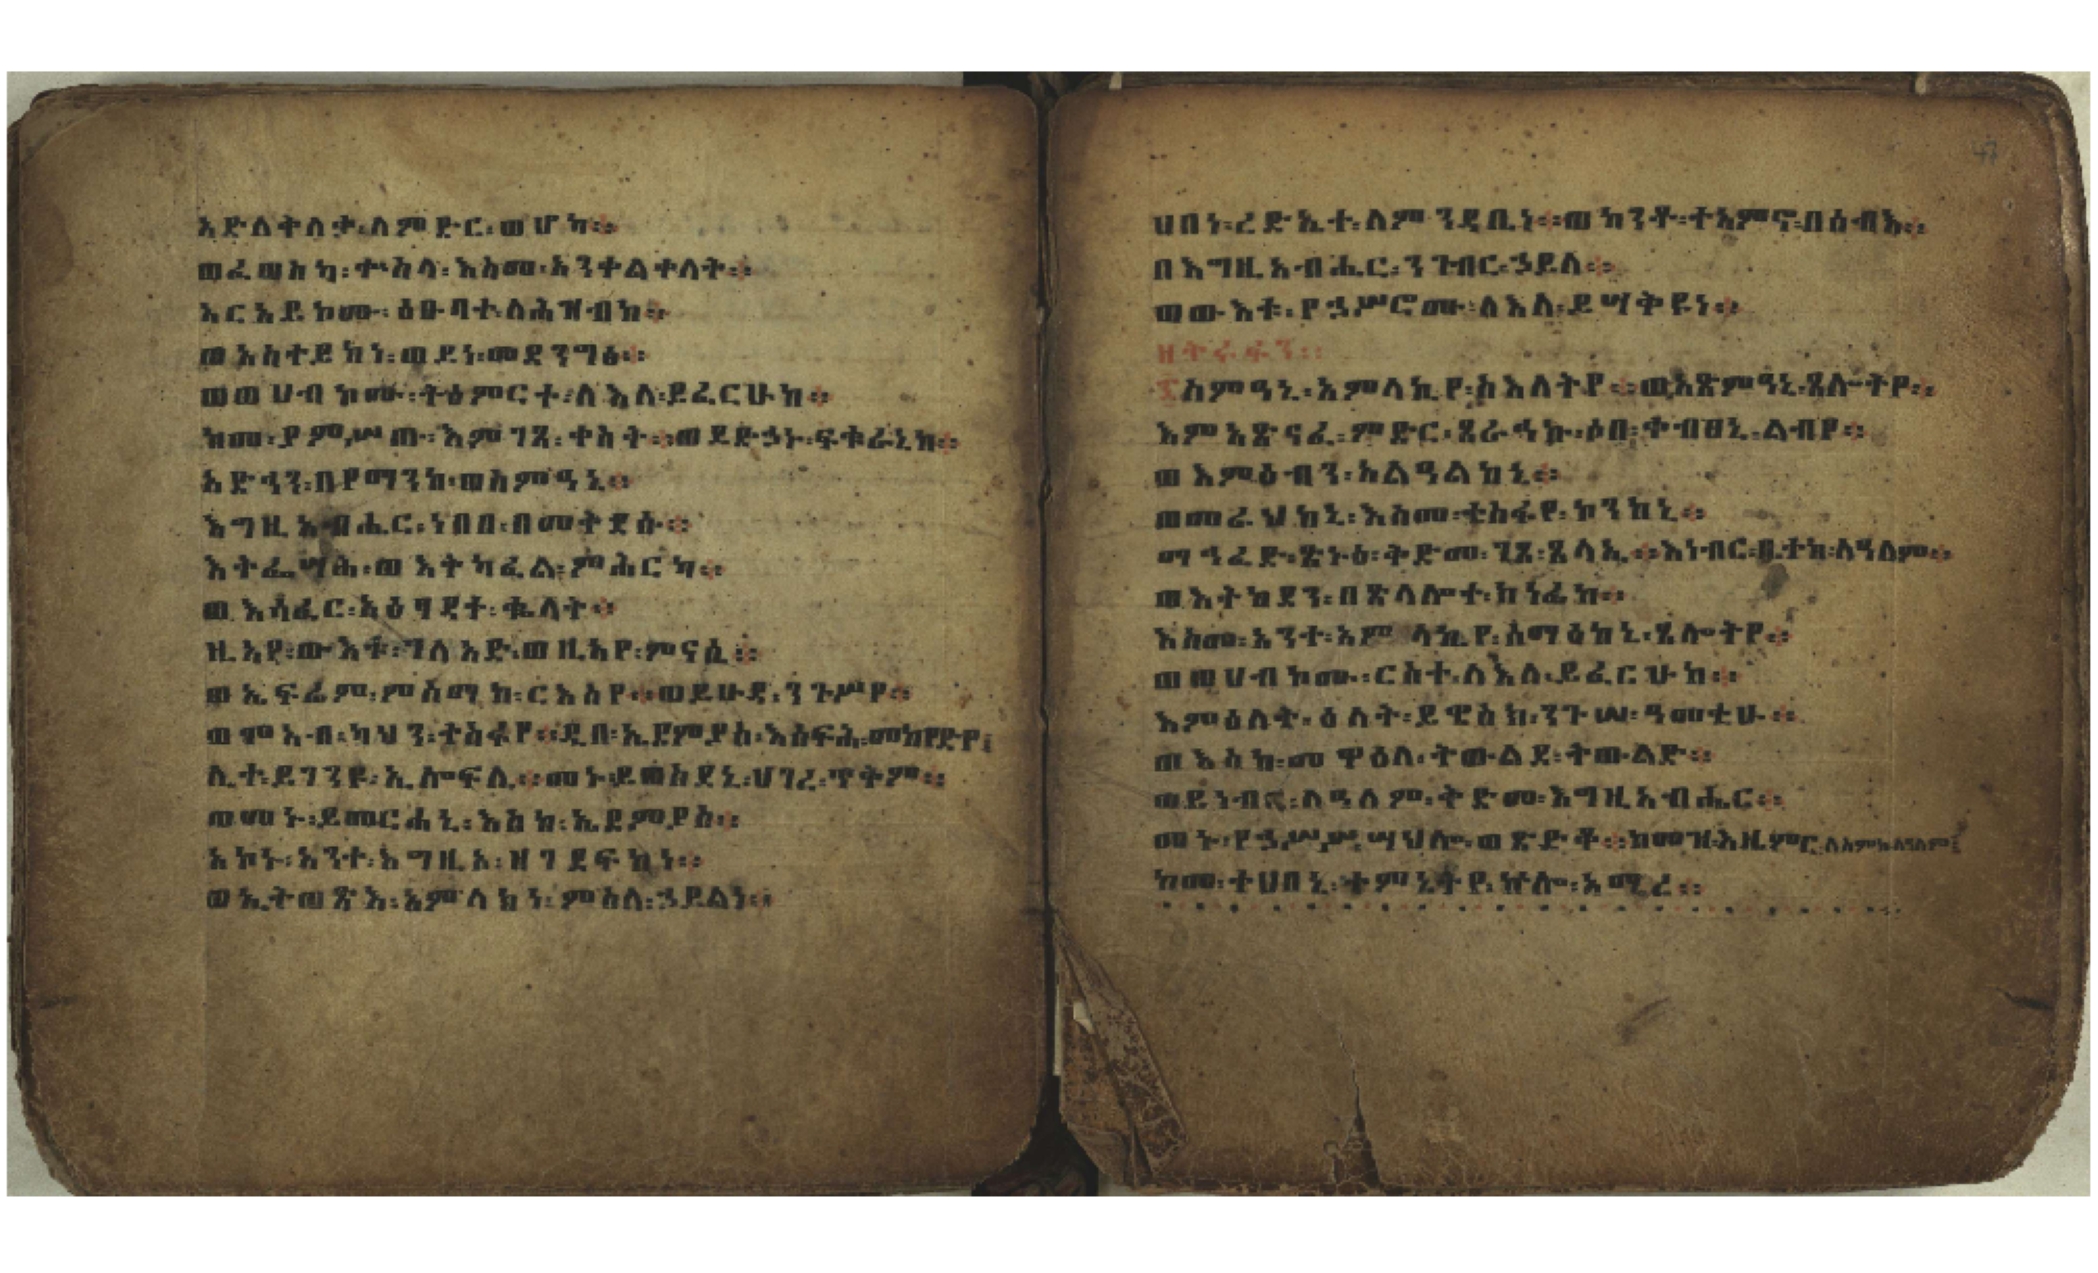 አድለቅለቃ፡ለምድር፡ወሆካ።
ወፈወስካ፡ቍስላ፡እስመ፡አንቀልቀለት።
አርአይኮሙ፡ዕፁባተ፡ለሕዝብከ።
ወአስተይከነ፡ወይነ፡መደንግፅ።
ወወሀብኮሙ፡ትዕምርተ፡ለእለ፡ይፈርሁከ።
ከመ፡ያምሥጡ፡እምገጸ፡ቀስት።ወይድኃኑ፡ፍቁራኒከ።
አድኅን፡በየማንከ፡ወስምዓኒ።
እግዚአብሔር፡ነበበ፡በመቅደሱ።
እትፌሣሕ፡ወእትካፈል፡ምሕርካ።
ወእሳፈር፡አዕጻዳተ፡ቈላት።
ዚአየ፡ውእቱ፡ገለአድ፡ወዚአየ፡ምናሴ።
ወኤፍሬም፡ምስማከ፡ርእስየ።ወይሁዳ፡ንጉሥየ።
ወሞአብ፡ካህን፡ተስፋየ።ዲበ፡ኢዶምያስ፡እሰፍሕ፡መከየድየ፤
ሊተ፡ይገንዩ፡ኢሎፍሊ።መኑ፡ይወስደኒ፡ሀገረ፡ጥቅም።
ወመኑ፡ይመርሐኒ፡እስከ፡ኤዶምያስ።
አኮኑ፡አንተ፡እግዚኦ፡ዘገደፍከነ።
ወኢትወጽእ፡አምላክነ፡ምስለ፡ኃይልነ።
ሀበነ፡ረድኤተ፡ለምንዳቤነ።ወከንቶ፡ተአምኖ፡በሰብእ።
በእግዚአብሔር፡ንገብር፡ኃይለ።
ወውእቱ፡የኃሥሮሙ፡ለእለ፡ይሣቅዩነ።
ስምዓኒ፡አምላኪየ፡ስእለትየ።ወአጽምዓኒ፡ጸሎትየ።
እምአጽናፈ፡ምድር፡ጸራኅኩ፡ሶበ፡ቀብፀኒ፡ልብየ።
ወእምዕብን፡አልዓልከኒ።
ወመራህከኒ፡እስመ፡ተስፋየ፡ኮንከኒ።
ማኅፈድ፡ጽኑዕ፡ቅድመ፡ገጸ፡ጸላኢ።እነብር፡ቤተከ፡ለዓለም።
ወእትከደን፡በጽላሎተ፡ክነፊከ።
እስመ፡አንተ፡አምላኪየ፡ሰማዕከኒ፡ጸሎትየ።
ወወሀብኮሙ፡ርስተ፡ለእለ፡ይፈርሁከ።
እምዕለት፡ዕለት፡ይዌስክ፡ንጉሠ፡ዓመቲሁ።
ወእስከ፡መዋዕለ፡ትውልደ፡ትውልድ።
ወይነብር፡ለዓለም፡ቅድመ፡እግዚአብሔር።
መኑ፡የኃሥሥ፡ሣህሎ፡ወጽድቆ።ከመዝ፡እዜምር፡ለአምላክ
ከመ፡ተሀበኒ፡ትምኒትየ፡ኵሎ፡አሚረ።